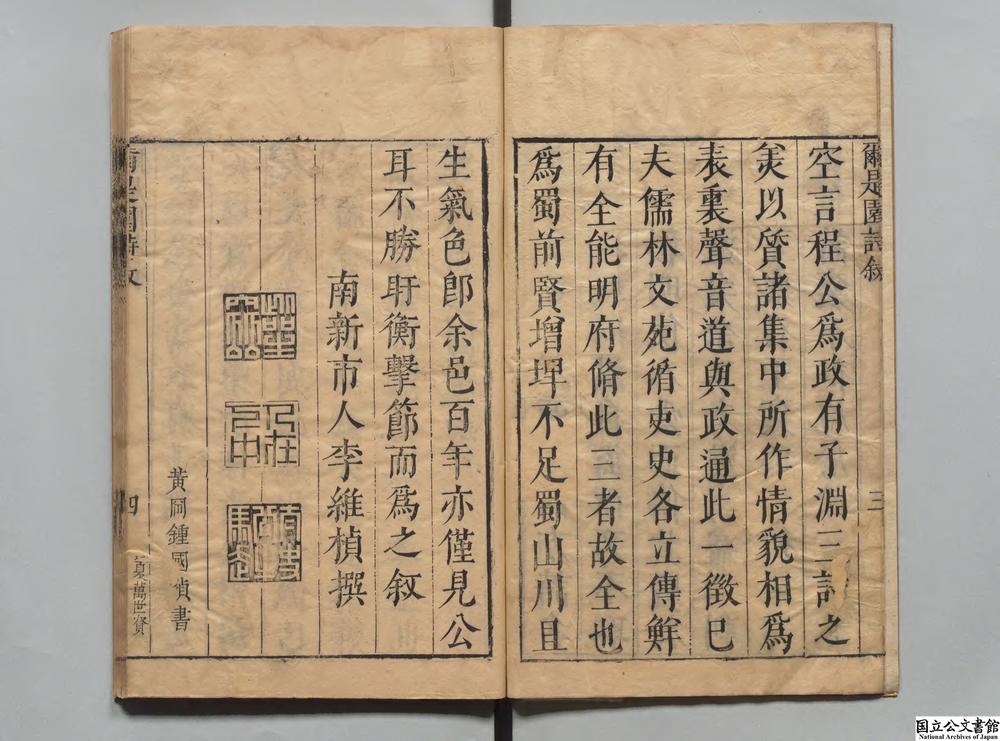 爾是園詩敘
三
空言程公爲政有子淵三詩之
美以質諸集中所作情貌相爲
表裏聲音道與政通此一徵已
夫儒林文苑循吏史各立傳鮮
有全能明府脩此三者故全也
爲蜀前賢增埤不足蜀山川且
生氣色卽余邑百年亦僅見公
耳不勝盱衡擊節而爲之叙
南新市人李維楨撰
黃岡鍾國楨書
四
萬世資
国立公文書館
National Archives of Japan